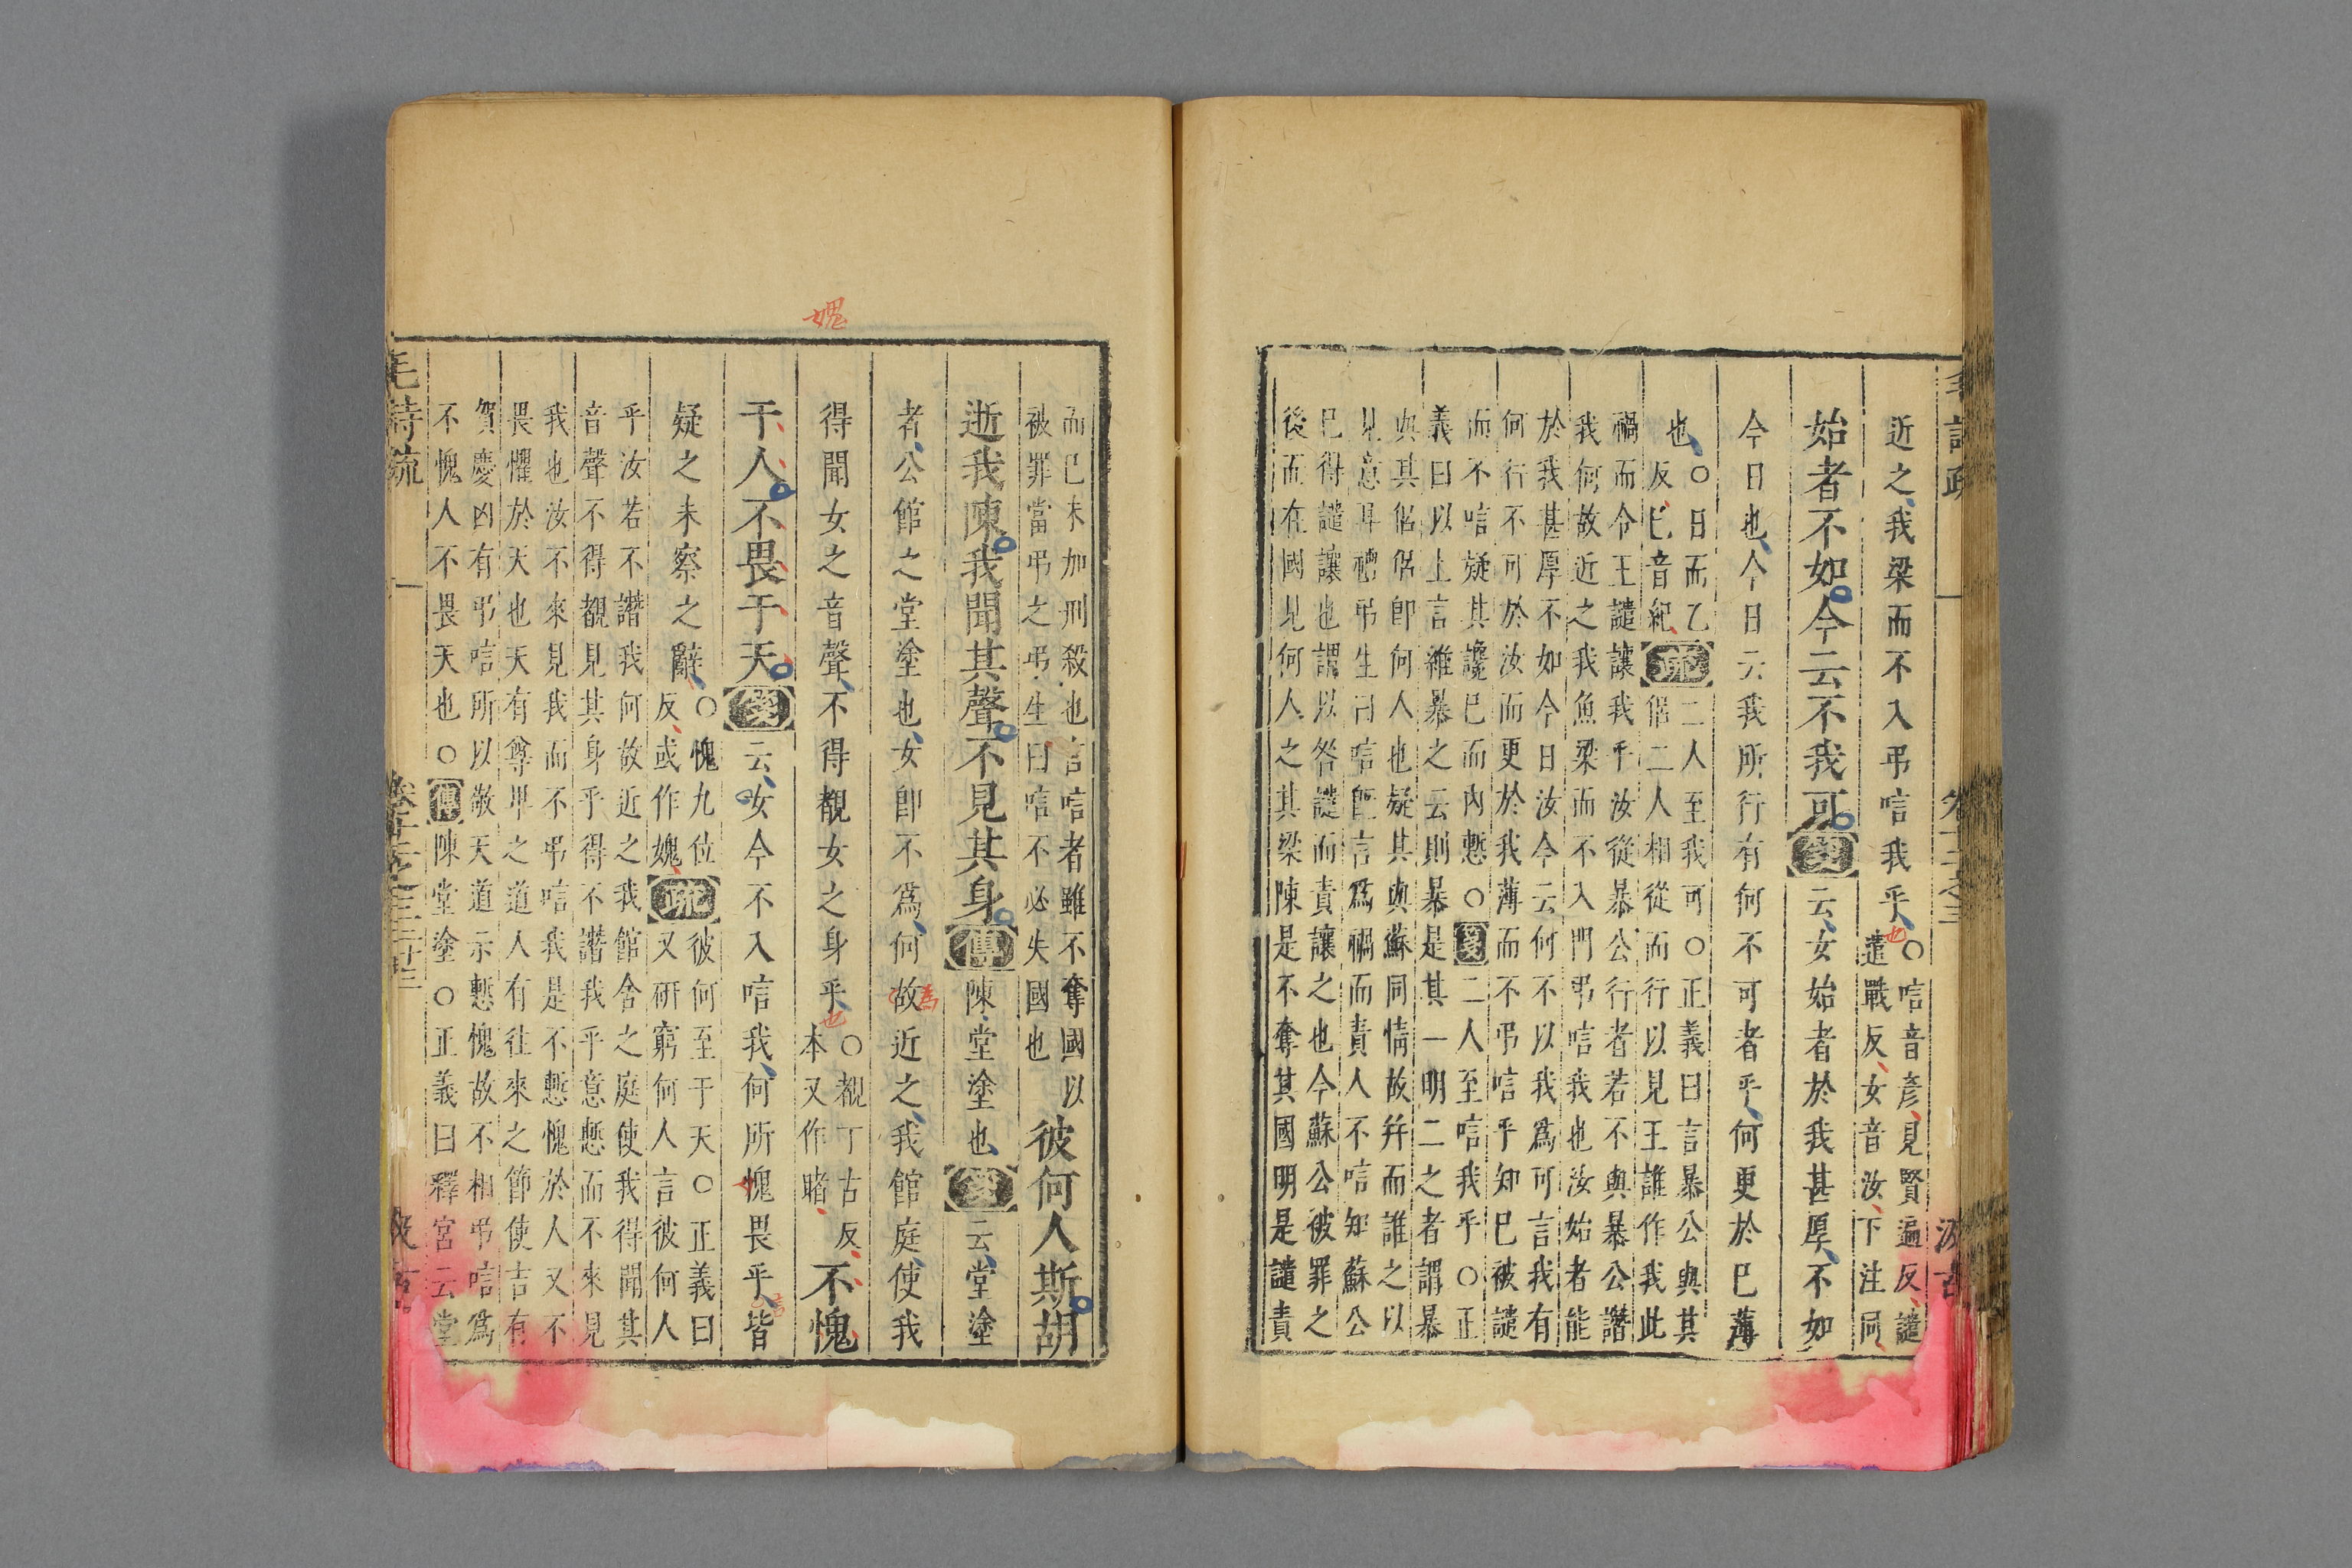 毛詩疏　卷十二之三　汲古
近之、我梁而不入弔唁我乎、也○唁音彥、見賢遍反、譴
遣戰反、女音汝、下注同、
始者不如今云不我可箋云、女始者於我甚厚、不如
今日也、今日云我所行有何不可者乎、何更於巳薄
也、○日而乙
反、巳音紀、疏二人至我可○正義曰言暴公與其
侶二人相從而行以見王誰作我此
禍而令王譴讓我乎汝從暴公行者若不與暴公譖
我何故近之我魚梁而不入門弔唁我也汝始者能
於我甚厚不如今日汝今云何不以我爲可言我有
何行不可於汝而更於我薄而不弔唁乎知巳被譴
而不唁疑其讒巳而內慙○箋二人至唁我乎○正
義曰以上言維暴之云則暴是其一明二之者謂暴
與其侶侶卽何人也疑其與蘇同情故幷而誰之以
見意耳禮弔生曰唁旣言爲禍而責人不唁知蘇公
巳得譴讓也謂以咎譴而責讓之也今蘇公被罪之
後而在國見何人之其梁陳是不奪其國明是譴責
而巳未加刑殺也言唁者雖不奪國以
被罪當弔之弔生曰唁不必失國也彼何人斯胡
逝我陳我聞其聲不見其身傳陳堂塗也、箋云、堂塗
者、公館之堂塗也、女卽不爲、何故爲近之、我館庭、使我
得聞女之音聲、不得覩女之身乎、也○覩丁古反、
本又作睹、不愧
媿
于人不畏于天箋云、女今不入唁我、何所愧畏乎、皆
疑之未察之辭、○愧九位
反、或作媿、疏彼何至于天○正義曰
又研窮何人言彼何人
乎汝若不譖我何故近之我館舍之庭使我得聞其
音聲不得覩見其身乎得不譖我乎意慙而不來見
我也汝不來見我而不弔唁我是不慙愧於人又不
畏懼於天也天有尊卑之道人有往來之節使吉有
賀慶凶有弔唁所以敬天道示慙愧故不相弔唁爲
不愧人不畏天也○傳陳堂塗○正義曰釋宮云堂
毛詩疏　卷十二之三　二十三　汲古